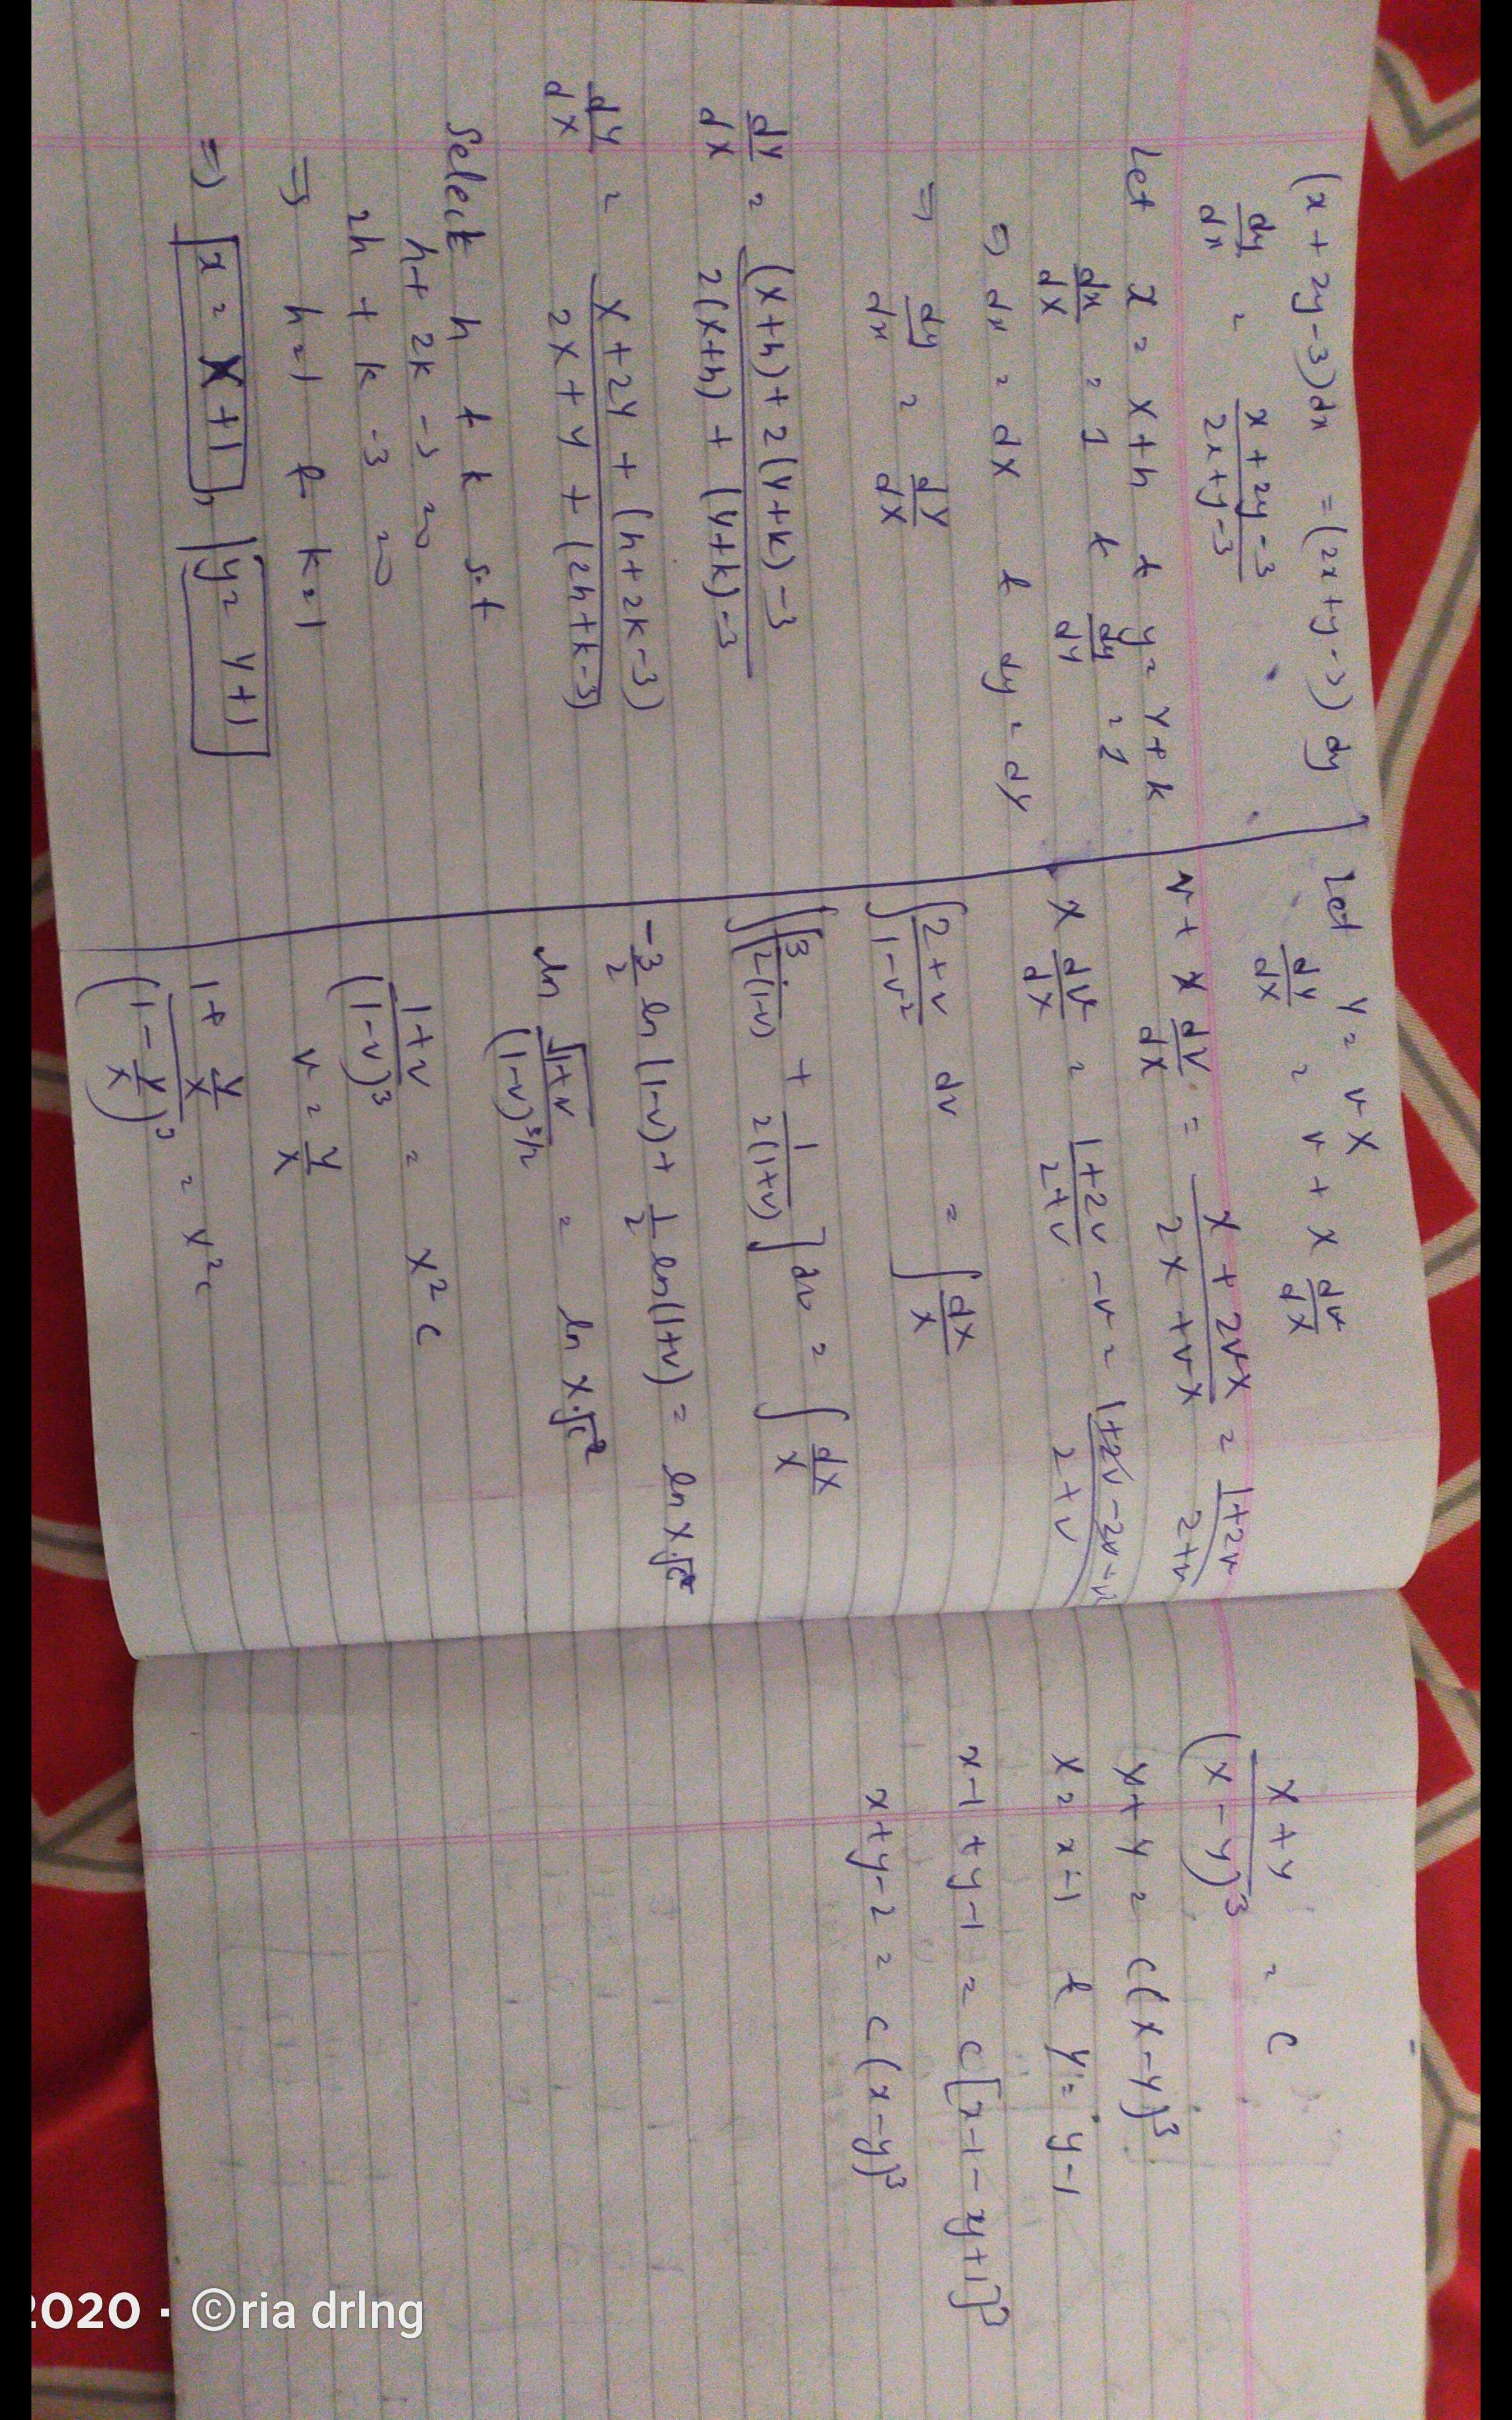 (x + 2y - 3)dx = (2x + y - 3) dy
dy/dx = (x + 2y - 3)/(2x + y - 3)
Let x = X + h & y = Y + k
dx/dX = 1 & dy/dY = 1
⇒ dx = dX & dy = dY
⇒ dy/dx = dY/dX
dY/dX = ((X+h) + 2(Y+k) - 3)/(2(X+h) + (Y+k) - 3)
dY/dX = (X + 2Y + (h + 2k - 3))/(2X + Y + (2h + k - 3))
Select h & k s.t
h + 2k - 3 = 0
2h + k - 3 = 0
⇒ h = 1 & k = 1
⇒ x = X + 1, y = Y + 1
Let Y = vX
dY/dX = v + X dv/dX
v + X dv/dX = (X + 2vX)/(2X + vX) = (1+2v)/(2+v)
X dv/dX = (1+2v)/(2+v) - v = (1+2v-2v-v²)/(2+v)
∫ (2+v)/(1-v²) dv = ∫ dX/X
∫[3/(2(1-v)) + 1/(2(1+v))] dv = ∫ dX/X
-3/2 ln(1-v) + 1/2 ln(1+v) = ln X.√c
ln √(1+v)/(1-v)^3/2 = ln X.√c
(1+v)/(1-v)³ = X² c
v = Y/X
(1 + Y/X)/(1 - Y/X)³ = X² c
(X + Y)/(X - Y)³ = c
X + Y = c(X - Y)³
X = x-1 & Y = y-1
x-1 + y-1 = c[x-1 - y+1]³
x+y-2 = c(x-y)³
2020 · ©ria drlng